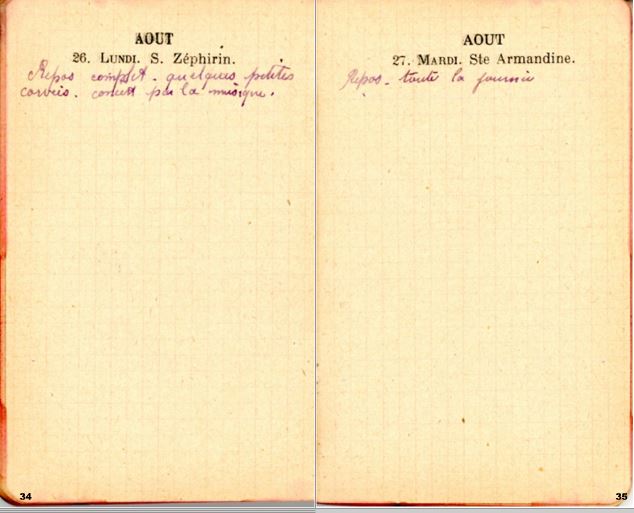 AOUT
26. LUNDI. S. Zéphirin.
Repos complet. quelques petites
corvées. concert par la musique.
34
AOUT
27. MARDI. Ste Armandine.
Repos - toute la journée
35